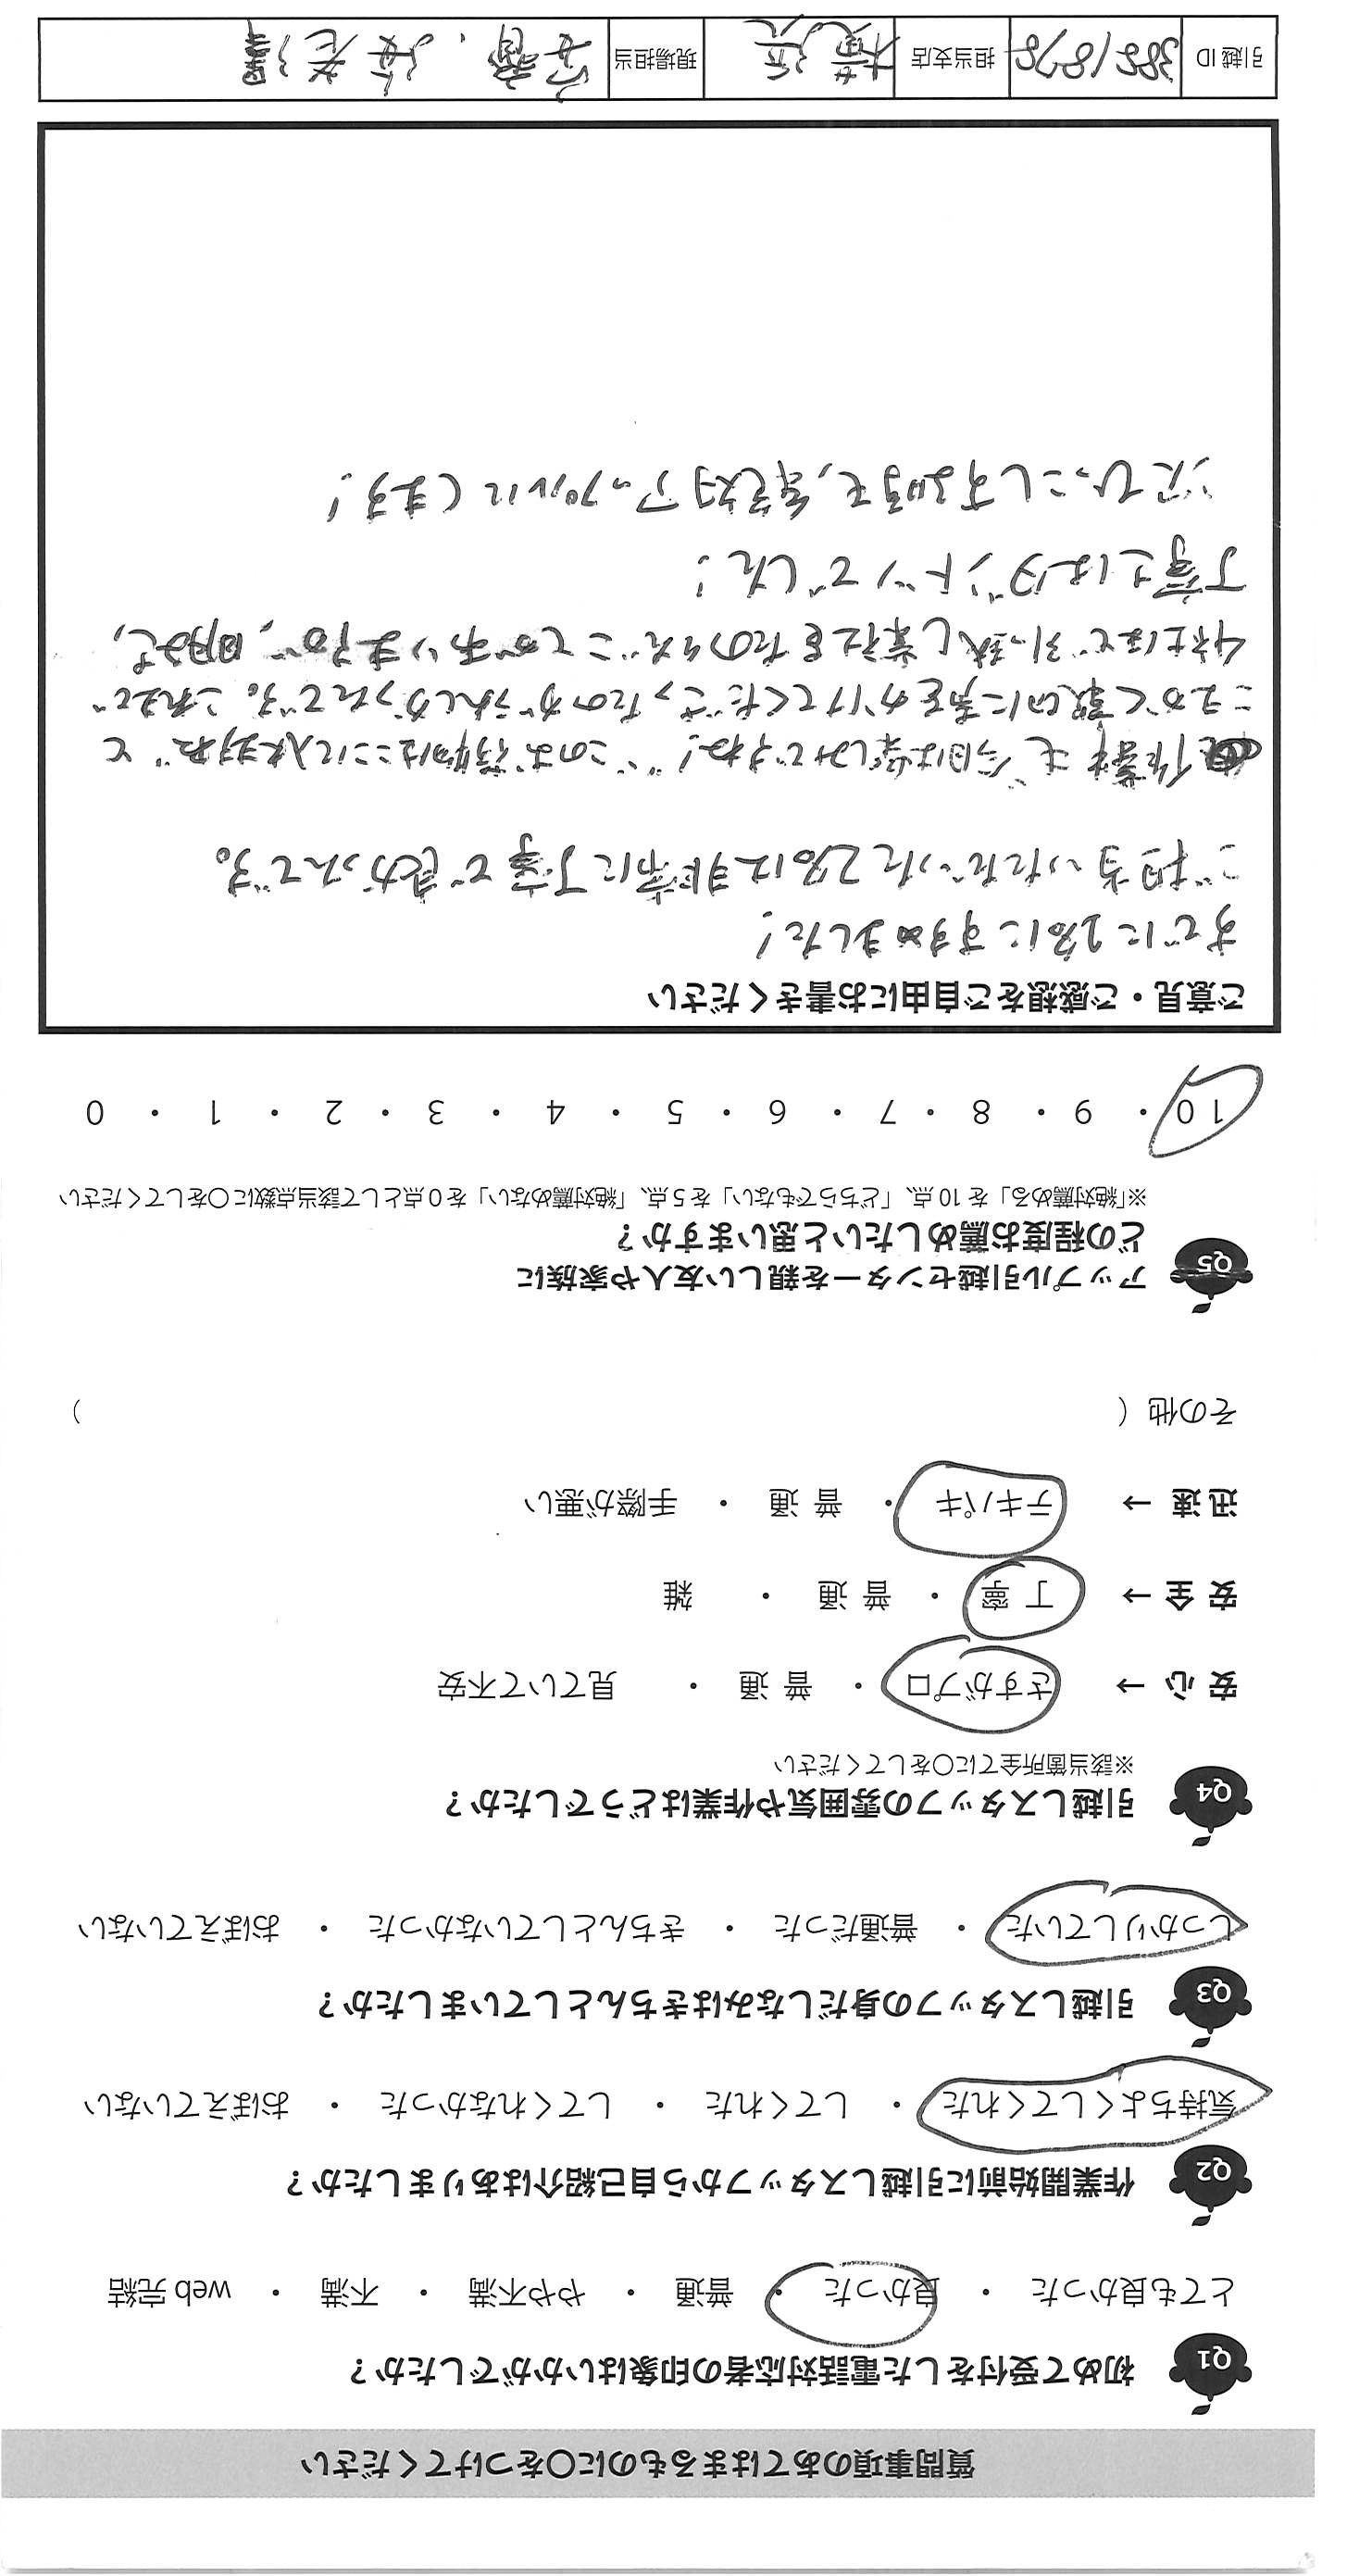 質問事項のあてはまるものに○をつけてください
Q1 初めて受付をした電話対応者の印象はいかがでしたか？
とても良かった ・ 良かった ・ 普通 ・ やや不満 ・ 不満 ・ web 完結
Q2 作業開始前に引越しスタッフから自己紹介はありましたか？
気持ちよくしてくれた ・ してくれた ・ してくれなかった ・ おぼえていない
Q3 引越しスタッフの身だしなみはきちんとしていましたか？
しっかりしていた ・ 普通だった ・ きちんとしていなかった ・ おぼえていない
Q4 引越しスタッフの雰囲気や作業はどうでしたか？
※該当箇所全てに○をしてください
安 心 → さすがプロ ・ 普 通 ・ 見ていて不安
安 全 → 丁 寧 ・ 普 通 ・ 雑
迅 速 → テキパキ ・ 普 通 ・ 手際が悪い
その他（ ）
Q5 アップル引越センターを親しい友人や家族に
どの程度お薦めしたいと思いますか？
※「絶対薦める」を 10 点、「どちらでもない」を 5 点、「絶対薦めない」を 0 点として該当点数に○をしてください
10 ・ 9 ・ 8 ・ 7 ・ 6 ・ 5 ・ 4 ・ 3 ・ 2 ・ 1 ・ 0
ご意見・ご感想をご自由にお書きください
すでに2名にすすめました！
ご担当いただいた2名は非常に丁寧で良かったです。
作業中も"今日は楽しみですね！""このお荷物はここに入れますね"と
こまかく親切に声をかけてくださったのがうれしかったです。これまで
4社ほど引っ越し業社をたのんだことがありますが、
丁寧さはダントツでした！
次ひっこしする時も、絶対アップルにします！
引越 ID 3851878 担当支店 横浜 現場担当